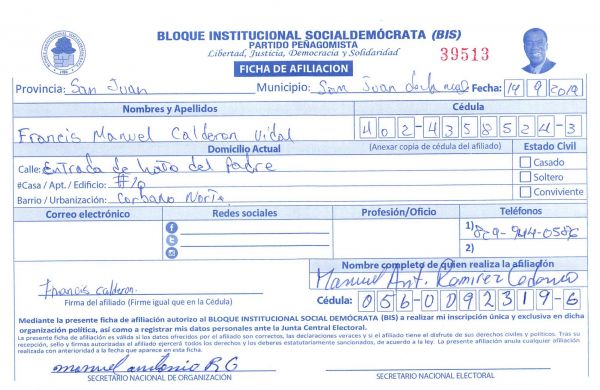 BLOQUE INSTITUCIONAL SOCIALDEMÓCRATA (BIS)
PARTIDO PEÑAGOMISTA
Libertad, Justicia, Democracia y Solidaridad
39513
FICHA DE AFILIACION
Provincia: San Juan Municipio: San Juan de la Fecha: 14 9 2019
Nombres y Apellidos Cédula
Francis Manuel Calderon Vidal 402-4358524-3
Domicilio Actual (Anexar copia de cédula del afiliado) Estado Civil
Calle: Entrada de hato del Padre Casado
#Casa / Apt. / Edificio: #10 Soltero
Barrio / Urbanización: Corbano Norte Conviviente
Correo electrónico Redes sociales Profesión/Oficio Teléfonos
1) 829-944-0586
2)
Nombre completo de quien realiza la afiliación
Francis calderon. Manuel Ant. Ramirez
Firma del afiliado (Firme igual que en la Cédula) Cédula: 056-0092319-6
Mediante la presente ficha de afiliación autorizo al BLOQUE INSTITUCIONAL SOCIAL DEMÓCRATA (BIS) a realizar mi inscripción única y exclusiva en dicha
organización política, así como a registrar mis datos personales ante la Junta Central Electoral.
La presente ficha de afiliación es válida si las datos ofrecidos por el afiliado son correctos, las declaraciones veraces y si el afiliado tiene el disfrute de sus derechos civiles y políticos. Tras su
recepción, sello y firmas autorizadas el afiliado ejercerá todos los derechos y los deberes estatutariamente sancionados, de acuerdo a la ley. La presente afiliación anula cualquier afiliación
realizada con anterioridad a la fecha que aparece en esta ficha.
manuel antonio R G
SECRETARIO NACIONAL DE ORGANIZACIÓN SECRETARIO NACIONAL ELECTORAL